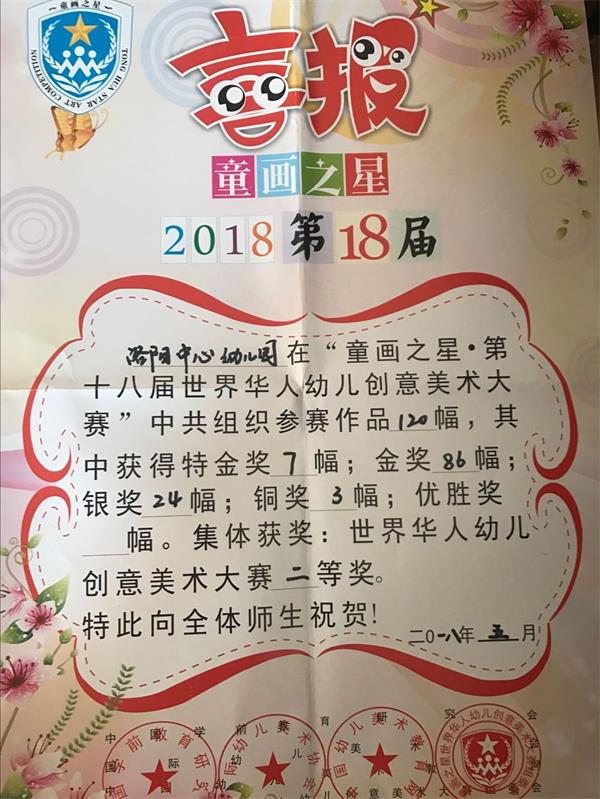 童画之星
TONG HUA STAR ART COMPETITION
喜报
童画之星
2018第18届
洛阳中心幼儿园在“童画之星·第
十八届世界华人幼儿创意美术大
赛”中共组织参赛作品120幅，其
中获得特金奖7幅；金奖86幅；
银奖24幅；铜奖3幅；优胜奖
幅。集体获奖：世界华人幼儿
创意美术大赛二等奖。
特此向全体师生祝贺!
二0一八年五月